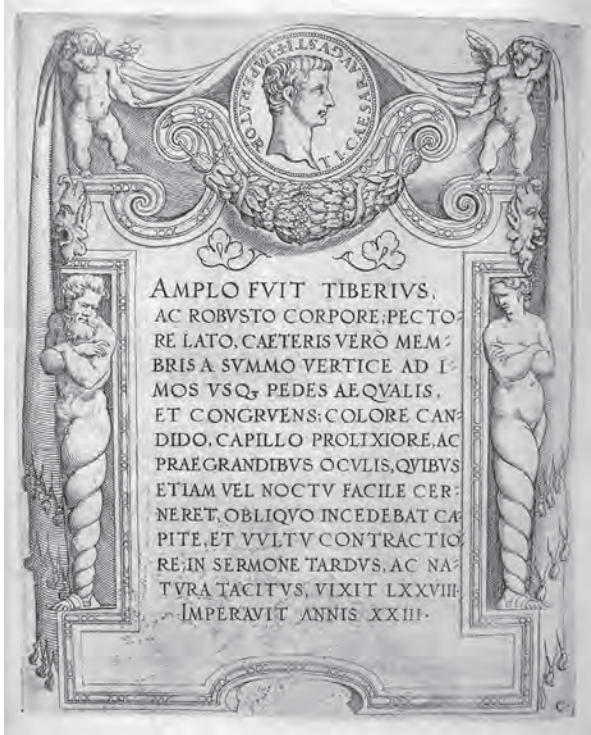 TI·CAESAR·AVGVSTI·F·IMPERATOR
AMPLO FVIT TIBERIVS,
AC ROBVSTO CORPORE; PECTO=
RE LATO, CAETERIS VERÒ MEM=
BRIS A SVMMO VERTICE AD I=
MOS VSQ₃ PEDES AEQVALIS,
ET CONGRVENS; COLORE CAN=
DIDO, CAPILLO PROLIXIORE, AC
PRAEGRANDIBVS OCVLIS, QVIBVS
ETIAM VEL NOCTV FACILE CER=
NERET, OBLIQVO INCEDEBAT CA=
PITE, ET VVLTV CONTRACTIO
RE; IN SERMONE TARDVS, AC NA=
TVRA TACITVS, VIXIT LXXVIII·
IMPERAVIT ANNIS XXIII·
C·